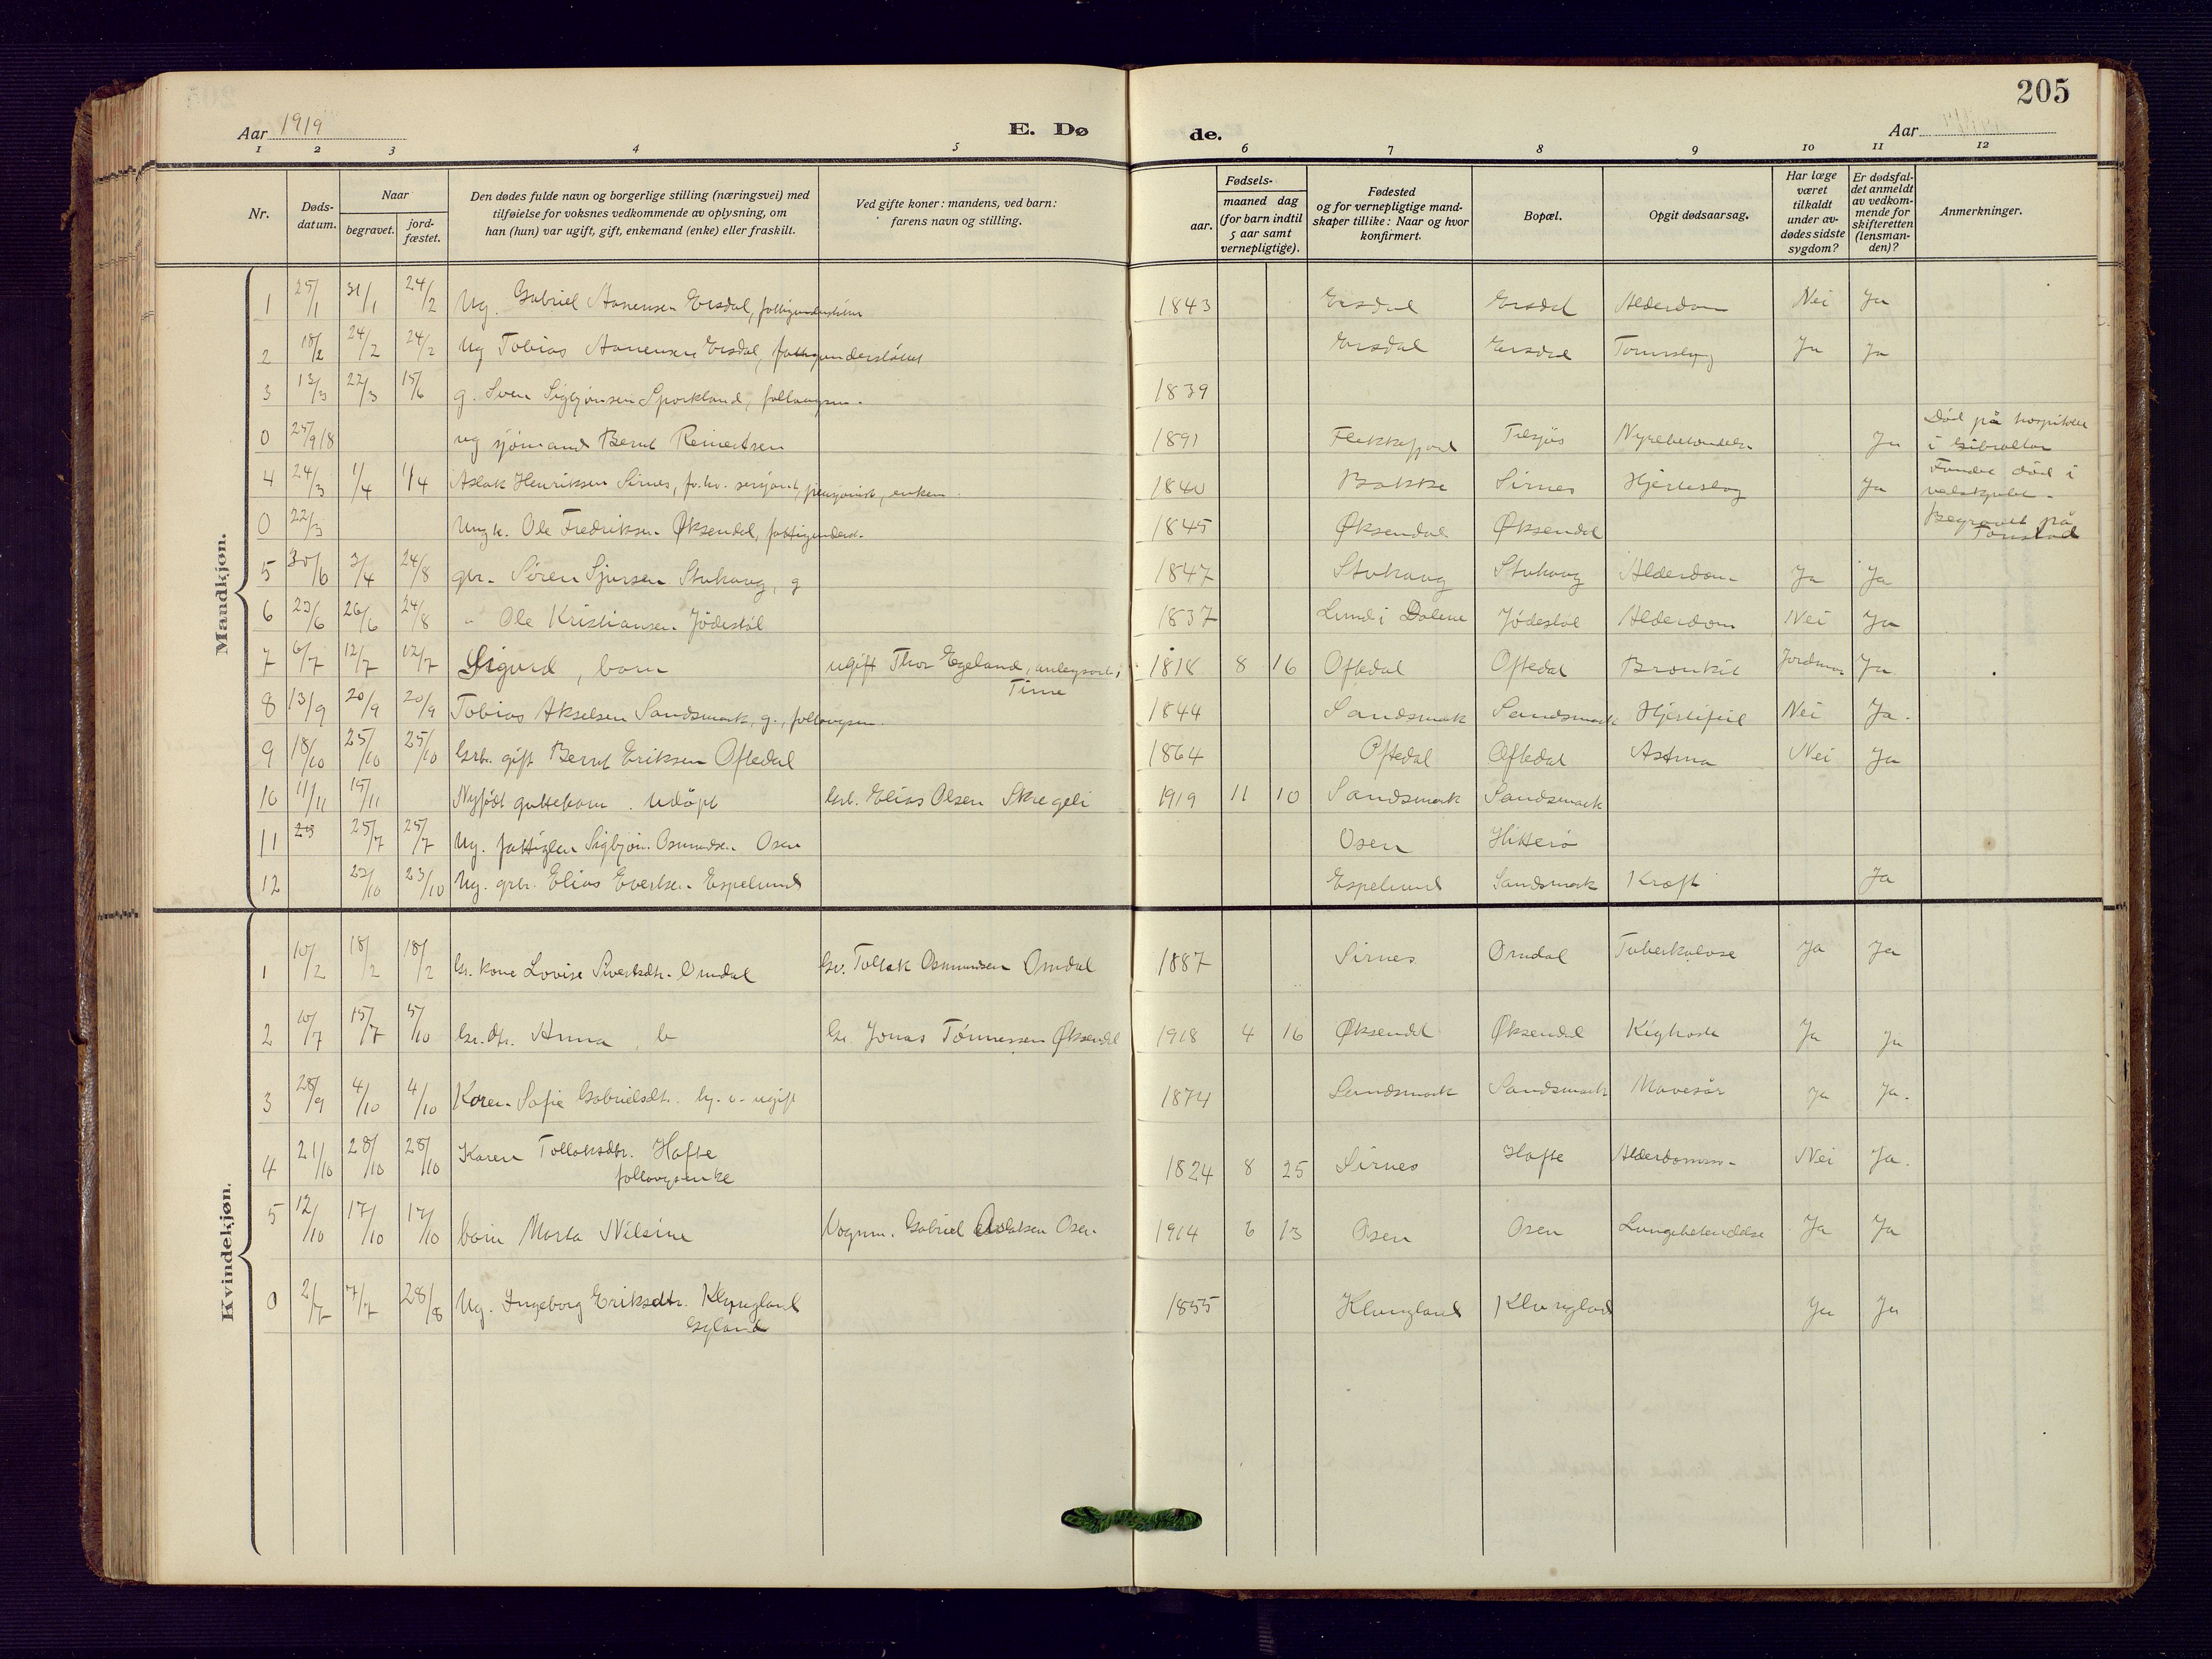 205
Aar 1919
E. Dø
de.
Aar
1 2 3 4 5 6 7 8 9 10 11 12
Nr.
Døds-datum.
Naar
begravet.
jord-fæstet.
Den dødes fulde navn og borgerlige stilling (næringsvei) med
tilføielse for voksnes vedkommende av oplysning, om
han (hun) var ugift, gift, enkemand (enke) eller fraskilt.
Ved gifte koner: mandens, ved barn:
farens navn og stilling.
Fødsels-
aar.
maaned dag
(for barn indtil
5 aar samt
vernepligtige).
Fødested
og for vernepligtige mand-
skaper tillike: Naar og hvor
konfirmert.
Bopæl.
Opgit dødsaarsag.
Har læge
været
tilkaldt
under av-
dødes sidste
sygdom?
Er dødsfal-
det anmeldt
av vedkom-
mende for
skifteretten
(lensman-
den)?
Anmerkninger.
Mandkjøn.
1 25/1 31/1 24/2 Ug. Gabriel Aanensen Ersdal, fattigunderstüttet 1843 Ersdal Ersdal Alderdom Nei Ja
2 18/2 24/2 24/2 Ug Tobias Aanensen Ersdal, fattigunderstöttet Ersdal Ersdal Ja Ja
3 13/3 22/3 15/6 g. Sven Sigbjönsen Sporkland, follaugsm. 1839
0 25/9 18 ug sjömand Bernt Reinertsen 1891 Flekkefjord Nyrebetændelse Ja Död på hospitalet
i Gibraltar
4 24/3 1/4 1/4 Aslak Henriksen Sirnes, fv. hv. sersjant, pensjonist, enkem. 1840 Bakke Sirnes Hjerteslag Ja Fundet död i
0 22/3 Ungk. Ole Fredriksen Øksendal, fattigunderst. 1845 Øksendal Øksendal Begravet på
Tonstad
5 30/6 3/4 24/8 gbr. Sören Sjursen Stuhaug, g 1847 Stuhaug Stuhaug Alderdom Ja Ja
6 23/6 26/6 24/8 " Ole Kristiansen Jödestöl 1837 Lund i Dalene Jödestöl Alderdom Nei Ja
7 6/7 12/7 12/7 Sigurd, barn ugift Thor Egeland, anlegsarb. i
Time 1918 8 16 Oftedal Oftedal Bronkit Jordmor Ja
8 13/9 20/9 20/9 Tobias Akselsen Sandsmark, g., follaugsm. 1844 Sandsmark Sandsmark Hjertefeil Nei Ja.
9 18/10 25/10 25/10 Grb. gift Bernt Eriksen Oftedal 1864 Oftedal Oftedal Astma Nei Ja
10 11/11 15/11 Nyfödt guttebarn. udöpt Grb. Elias Olsen Skregeli 1919 11 10 Sandsmark Sandsmark
11 23 25/7 25/7 Ug. fattiglem Sigbjön Osmundsen Osen Osen Hitterö
12 23/10 23/10 Ug. grbr. Elias Evertsen Espelund Espelund Sandsmark Kræft Ja
Kvindekjøn.
1 10/2 18/2 18/2 Gr. kone Lovise Sivertsdtr. Omdal Gr. Tollak Osmundsen Omdal 1887 Sirnes Omdal Tuberkulose Ja Ja
2 10/7 15/7 5/10 Gr. dtr. Anna, b Gr. Jonas Tönnessen Øksendal 1918 4 16 Øksendal Øksendal Kighoste Ja Ja
3 28/9 4/10 4/10 Karen Sofie Gabrielsdtr. ugift 1874 Sandsmark Sandsmark Mavesår Ja Ja.
4 21/10 28/10 28/10 Karen Tollaksdtr. Hafte
follaugsenke 1824 8 25 Sirnes Hafte Nei Ja.
5 12/10 17/10 17/10 barn Marta Nilsine Vognm. Gabriel Aslaksen Osen 1914 6 13 Osen Osen Lungebetendelse Ja Ja
0 2/7 7/7 28/8 Ug. Ingeborg Eriksdtr. Klungland
Gyland 1855 Klungland Klungland Ja Ja